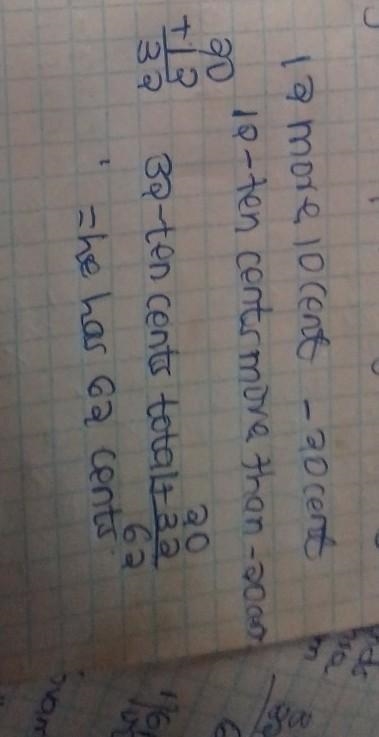 12 more 10 cent - 20 cent
20 12-ten cents more than -20cen
+12 20
32 32-ten cents total + 32
62
=he has 62 cents